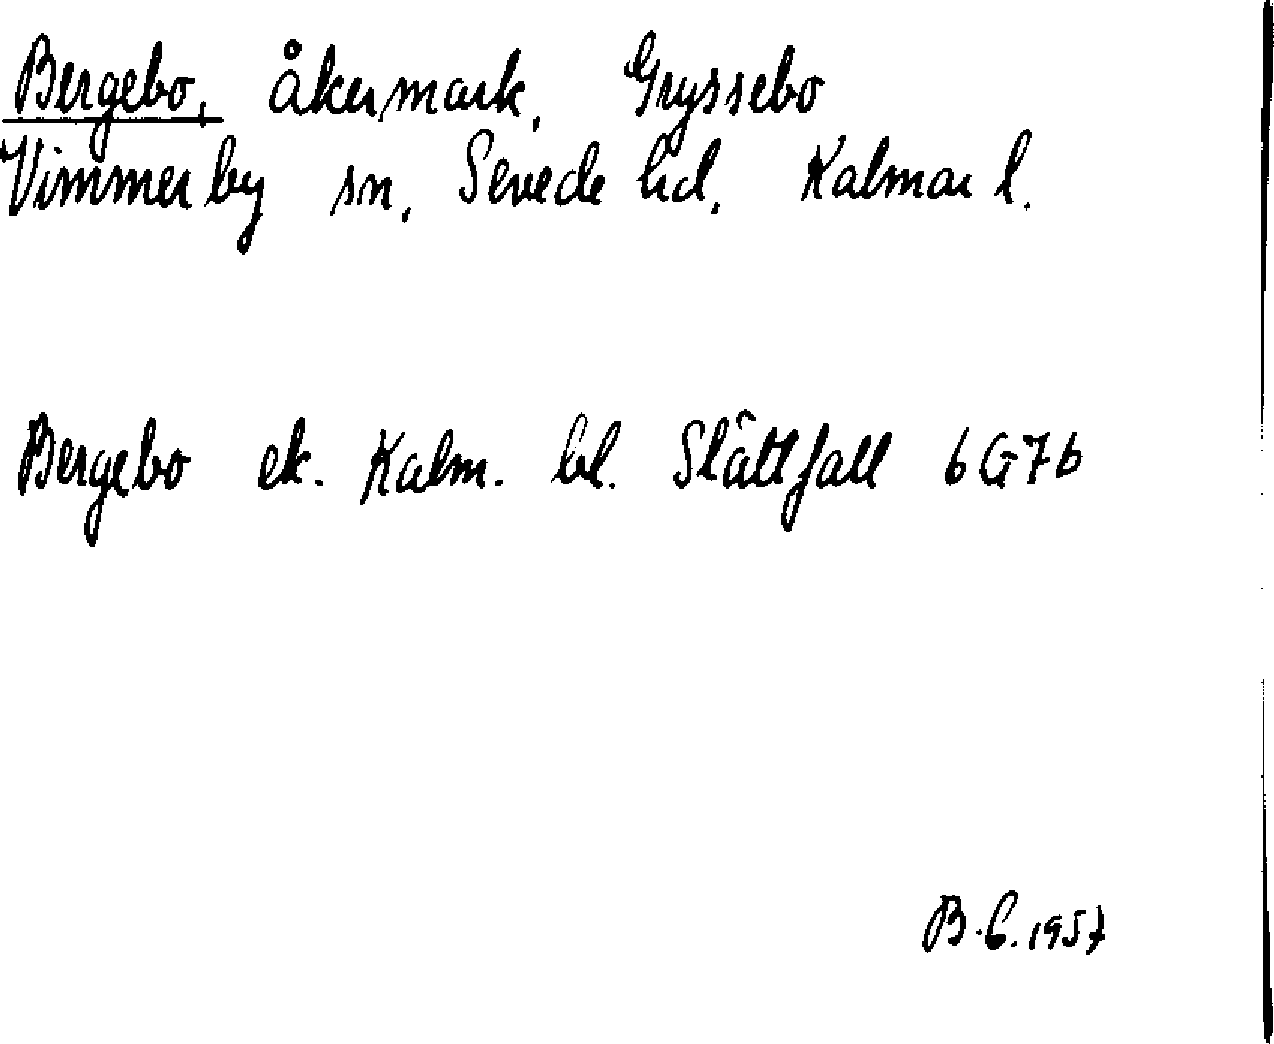 Bergebo, åkermark, Gryssebo
Vimmerby sn, Sevede hd, Kalmar l.
Bergebo ek. Kalm. bl. Slättfall 6G7b
B.C. 1957